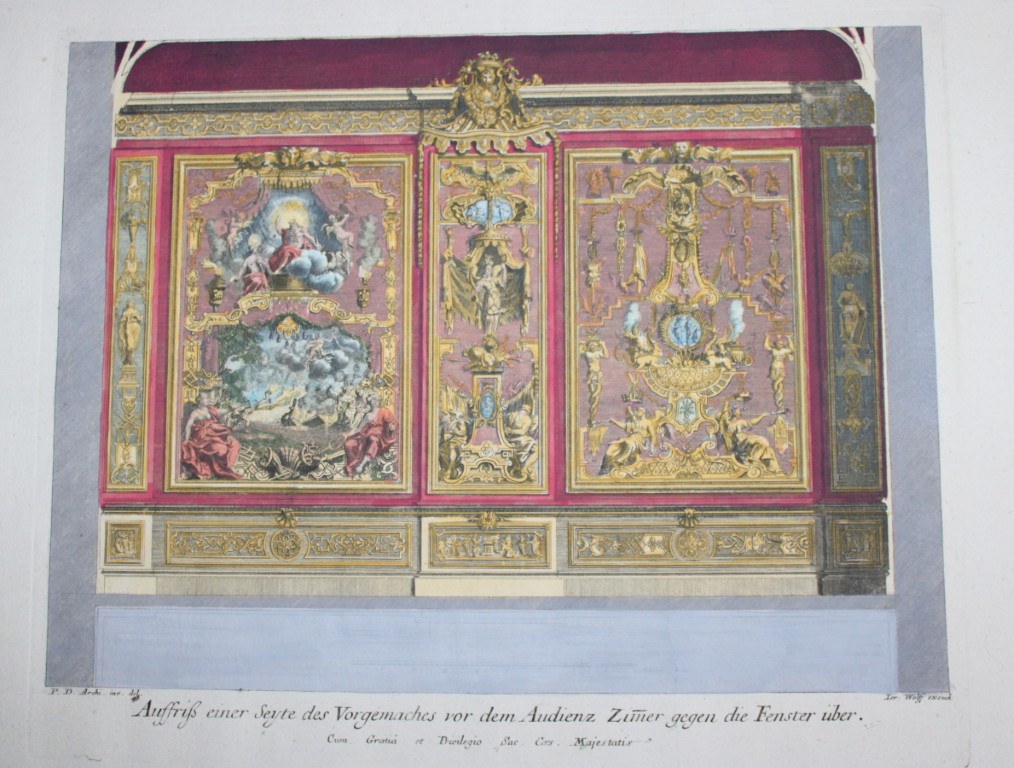 P. D. Archi. inv. del.
Ier. Wolff excud.
Auffriß einer Seyte des Vorgemaches vor dem Audienz Zim̅er gegen die Fenster über.
Cum Gratia et Privilegio Sac. Cæs. Majestatis